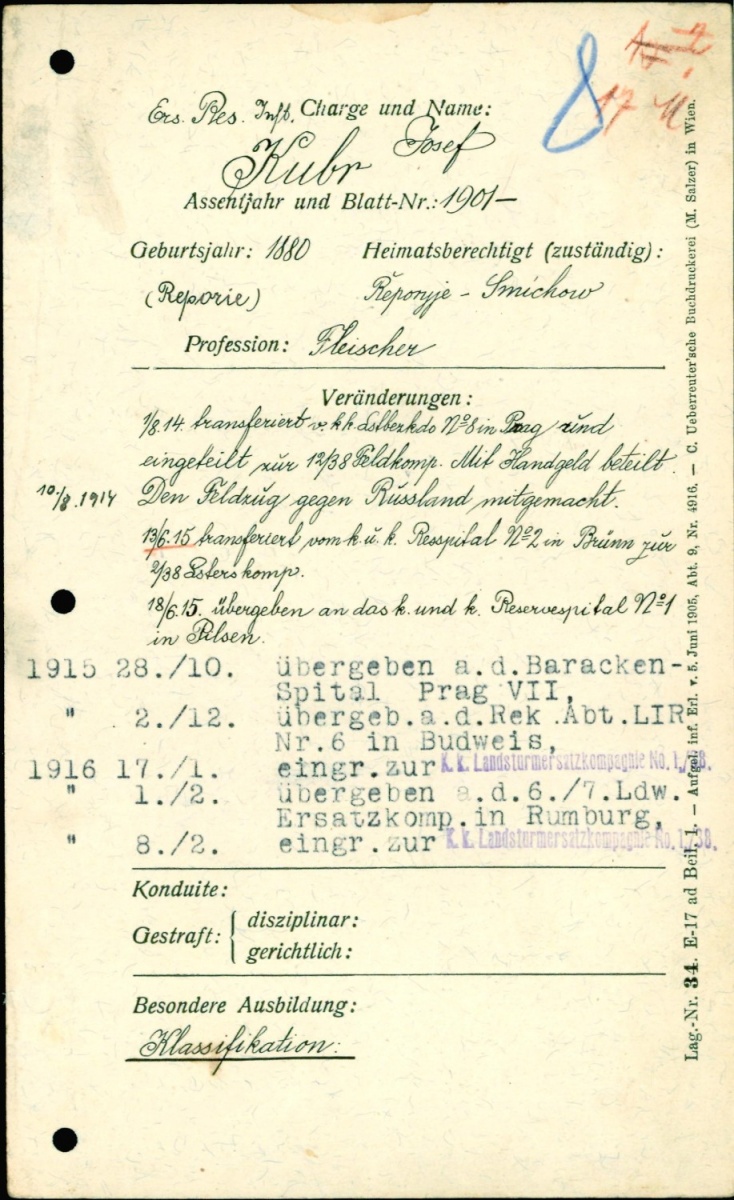 8
17
Ers. Res. Inft. Charge und Name:
Kubr Josef
Assentjahr und Blatt-Nr.: 1901 —
Geburtsjahr: 1880 Heimatsberechtigt (zuständig):
(Reporie) Řeporyje - Smichow
Profession: Fleischer
Veränderungen:
1/8.14. transferiert v. k.k. Lstbezkdo Nº 8 in Prag und
eingeteilt zur 12/38 Feldkomp. Mit Handgeld beteilt.
10./8.1914 Den Feldzug gegen Russland mitgemacht.
13/6.15 transferiert vom k. u. k. Resspital Nº 2 in Brünn zur
2/38 Lsters komp.
18/6.15. übergeben an das k. und k. Reservespital Nº 1
in Pilsen.
1915 28./10. übergeben a.d.Baracken-
Spital Prag VII,
" 2./12. übergeb.a.d.Rek.Abt.LIR
Nr.6 in Budweis,
1916 17./1. eingr.zur K. k. Landsturmersatzkompagnie No. 1./38.
" 1./2. übergeben a.d.6./7.Ldw.
Ersatzkomp.in Rumburg,
" 8./2. eingr.zur K. k. Landsturmersatzkompagnie No. 1./38.
Konduite:
Gestraft: disziplinar:
gerichtlich:
Besondere Ausbildung:
Klassifikation:
Lag.-Nr. 34. E-17 ad Beil. 1. — Aufgel. inf. Erl. v. 5. Juni 1905, Abt. 9, Nr. 4916. — C. Ueberreuter'sche Buchdruckerei (M. Salzer) in Wien.